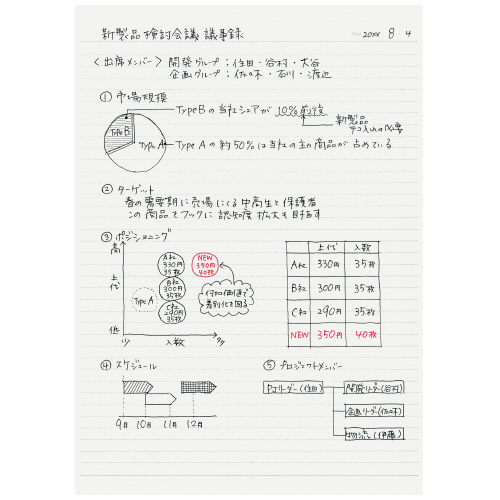 新製品検討会議 議事録
20XX 8 4
〈出席メンバー〉 開発グループ：住田・谷村・大谷
企画グループ：佐々木・石川・渡辺
① 市場規模
Type Bの当社シェアが10%前後
新製品
テコ入れの必要
Type B
Type A
Type Aの約50%は当社の主力商品が占めている
② ターゲット
春の需要期に売場にくる中高生と保護者
この商品でフックに認知度拡大も目指す
③ ポジショニング
高
上代
低
少
入数
多
A社
330円
35枚
NEW
350円
40枚
B社
300円
35枚
Type A
C社
290円
35枚
付加価値で
差別化を図る
上代 入数
A社 330円 35枚
B社 300円 35枚
C社 290円 35枚
NEW 350円 40枚
④ スケジュール
9月 10月 11月 12月
⑤ プロジェクトメンバー
PJリーダー(住田)
開発リーダー(谷村)
企画リーダー(佐々木)
物流(伊藤)